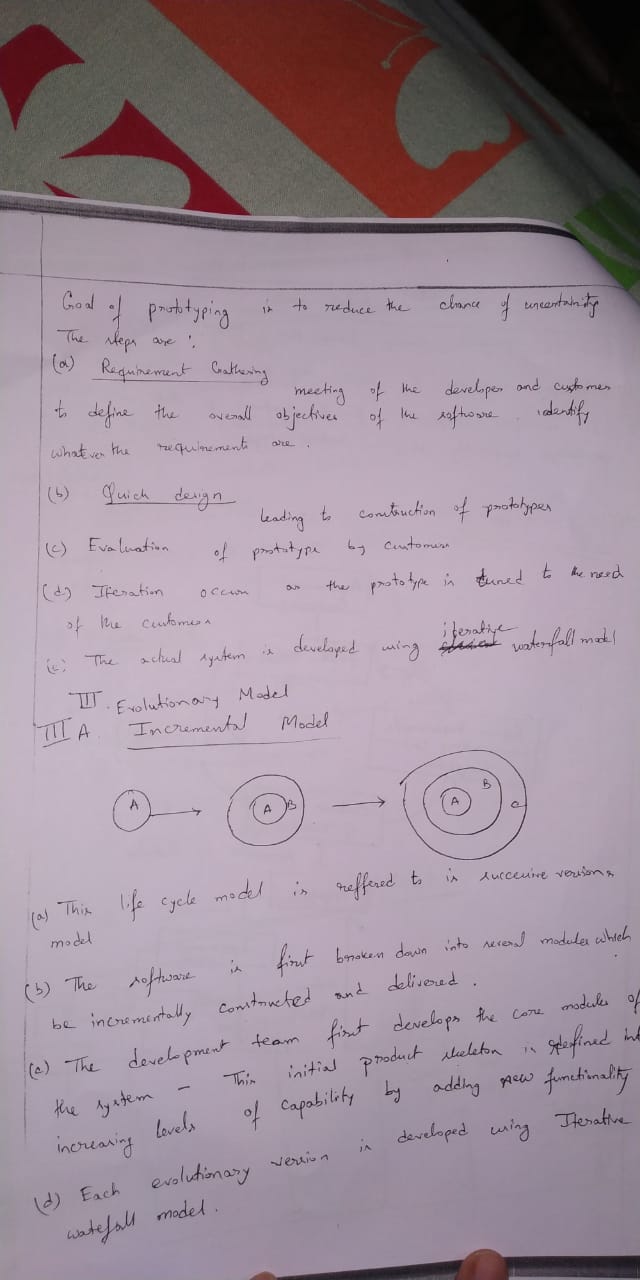 Goal of prototyping is to reduce the chance of uncertainity
The steps are :
(a) Requirement Gathering
meeting of the developer and customer
to define the overall objectives of the software . identify
whatever the requirements are .
(b) Quick design
leading to construction of prototypes
(c) Evaluation of prototype by customers
(d) Iteration occurs as the prototype is tuned to the need
of the customers
(e) The actual system is developed using iterative waterfall model
III . Evolutionary Model
III A. Incremental Model
A
A B
A B C
(a) This life cycle model is reffered to is succesive versions
model
(b) The software is first broken down into several modules which
be incrementally constructed and delivered .
(c) The development team first develops the core modules of
the system – This initial product skeleton is refined int
increasing levels of capability by adding new functionality
(d) Each evolutionary version is developed using Iterative
watefall model .